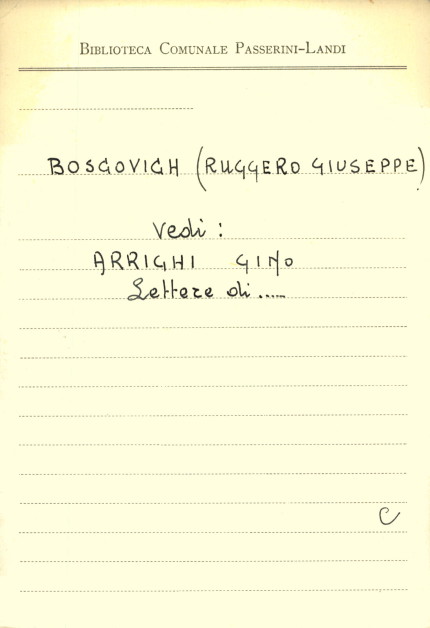 BIBLIOTECA COMUNALE PASSERINI-LANDI
BOSCOVICH (RUGGERO GIUSEPPE)
Vedi :
ARRIGHI GINO
Lettere di .....
C